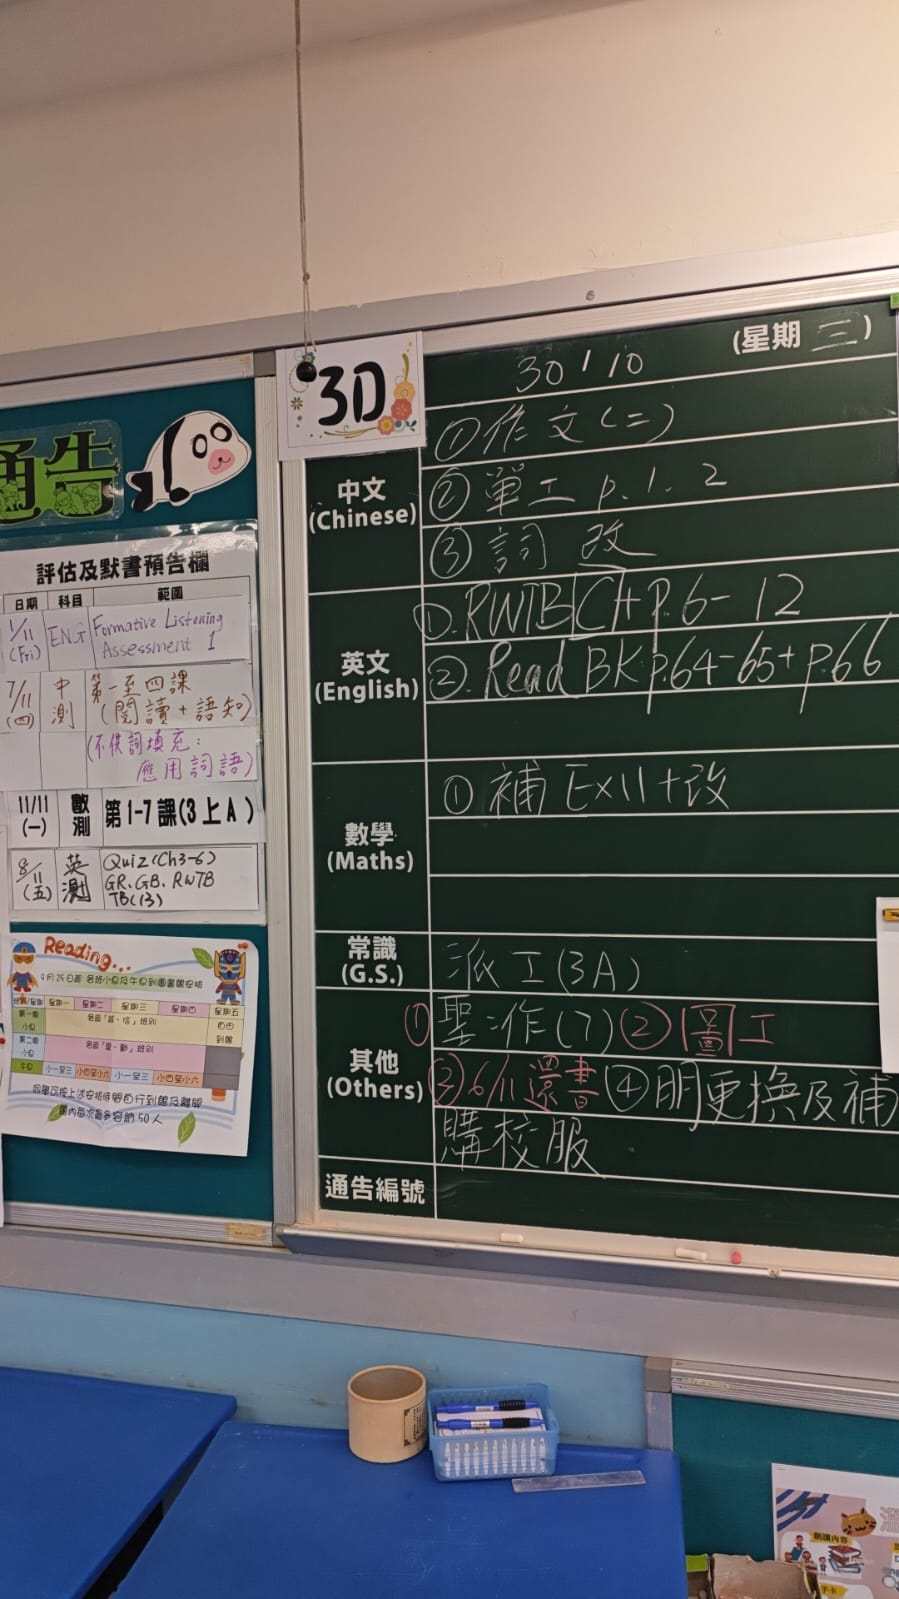 (星期 三)
30/10
3D
中文
(Chinese)
①作文(二)
②單工 p.1.2
③詞 改
英文
(English)
①.RWTB(C)+p.6-12
②.Read BK p.64-65+p.66
數學
(Maths)
①補 Ex11+改
常識
(G.S.)
派工(3A)
其他
(Others)
①聖.作(7)②圖工
③6/11還書④朋更換及補
購校服
通告編號
通告
評估及默書預告欄
日期 科目 範圍
1/11 (Fri) ENG Formative Listening
Assessment 1
7/11 (四) 中測 第一至四課
(閱讀+語知)
(不供詞填充:
應用詞語)
11/11 (一) 數測 第1-7課(3上A)
8/11 (五) 英測 Quiz(Ch3-6)
GR、GB、RWTB
TB(13)
Reading...
星期一 星期二 星期三 星期四 星期五
自由
到館
午息 小一至三 小四至小六 小一至三 小四至小六
同學可按上述安排時間自行到館及離開
館內每次最多容納50人
朗讀內容
字卡